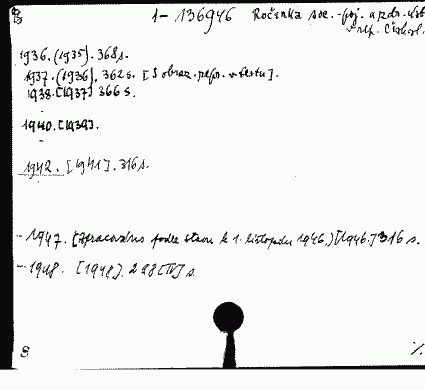 B 1-136946 Ročenka soc.-poj. a zdr.
v rep. Českosl.
1936. (1935). 368 s.
1937. (1936), 362 s. [S obraz. v textu].
1938. [1937] 366 s.
1940. [1939].
1942. [1941]. 316 s.
- 1947. [Zpracováno podle stavu k 1. listopadu 1946.] [1946.] 316 s.
- 1948. [1948]. 298 [IV] s.
S %